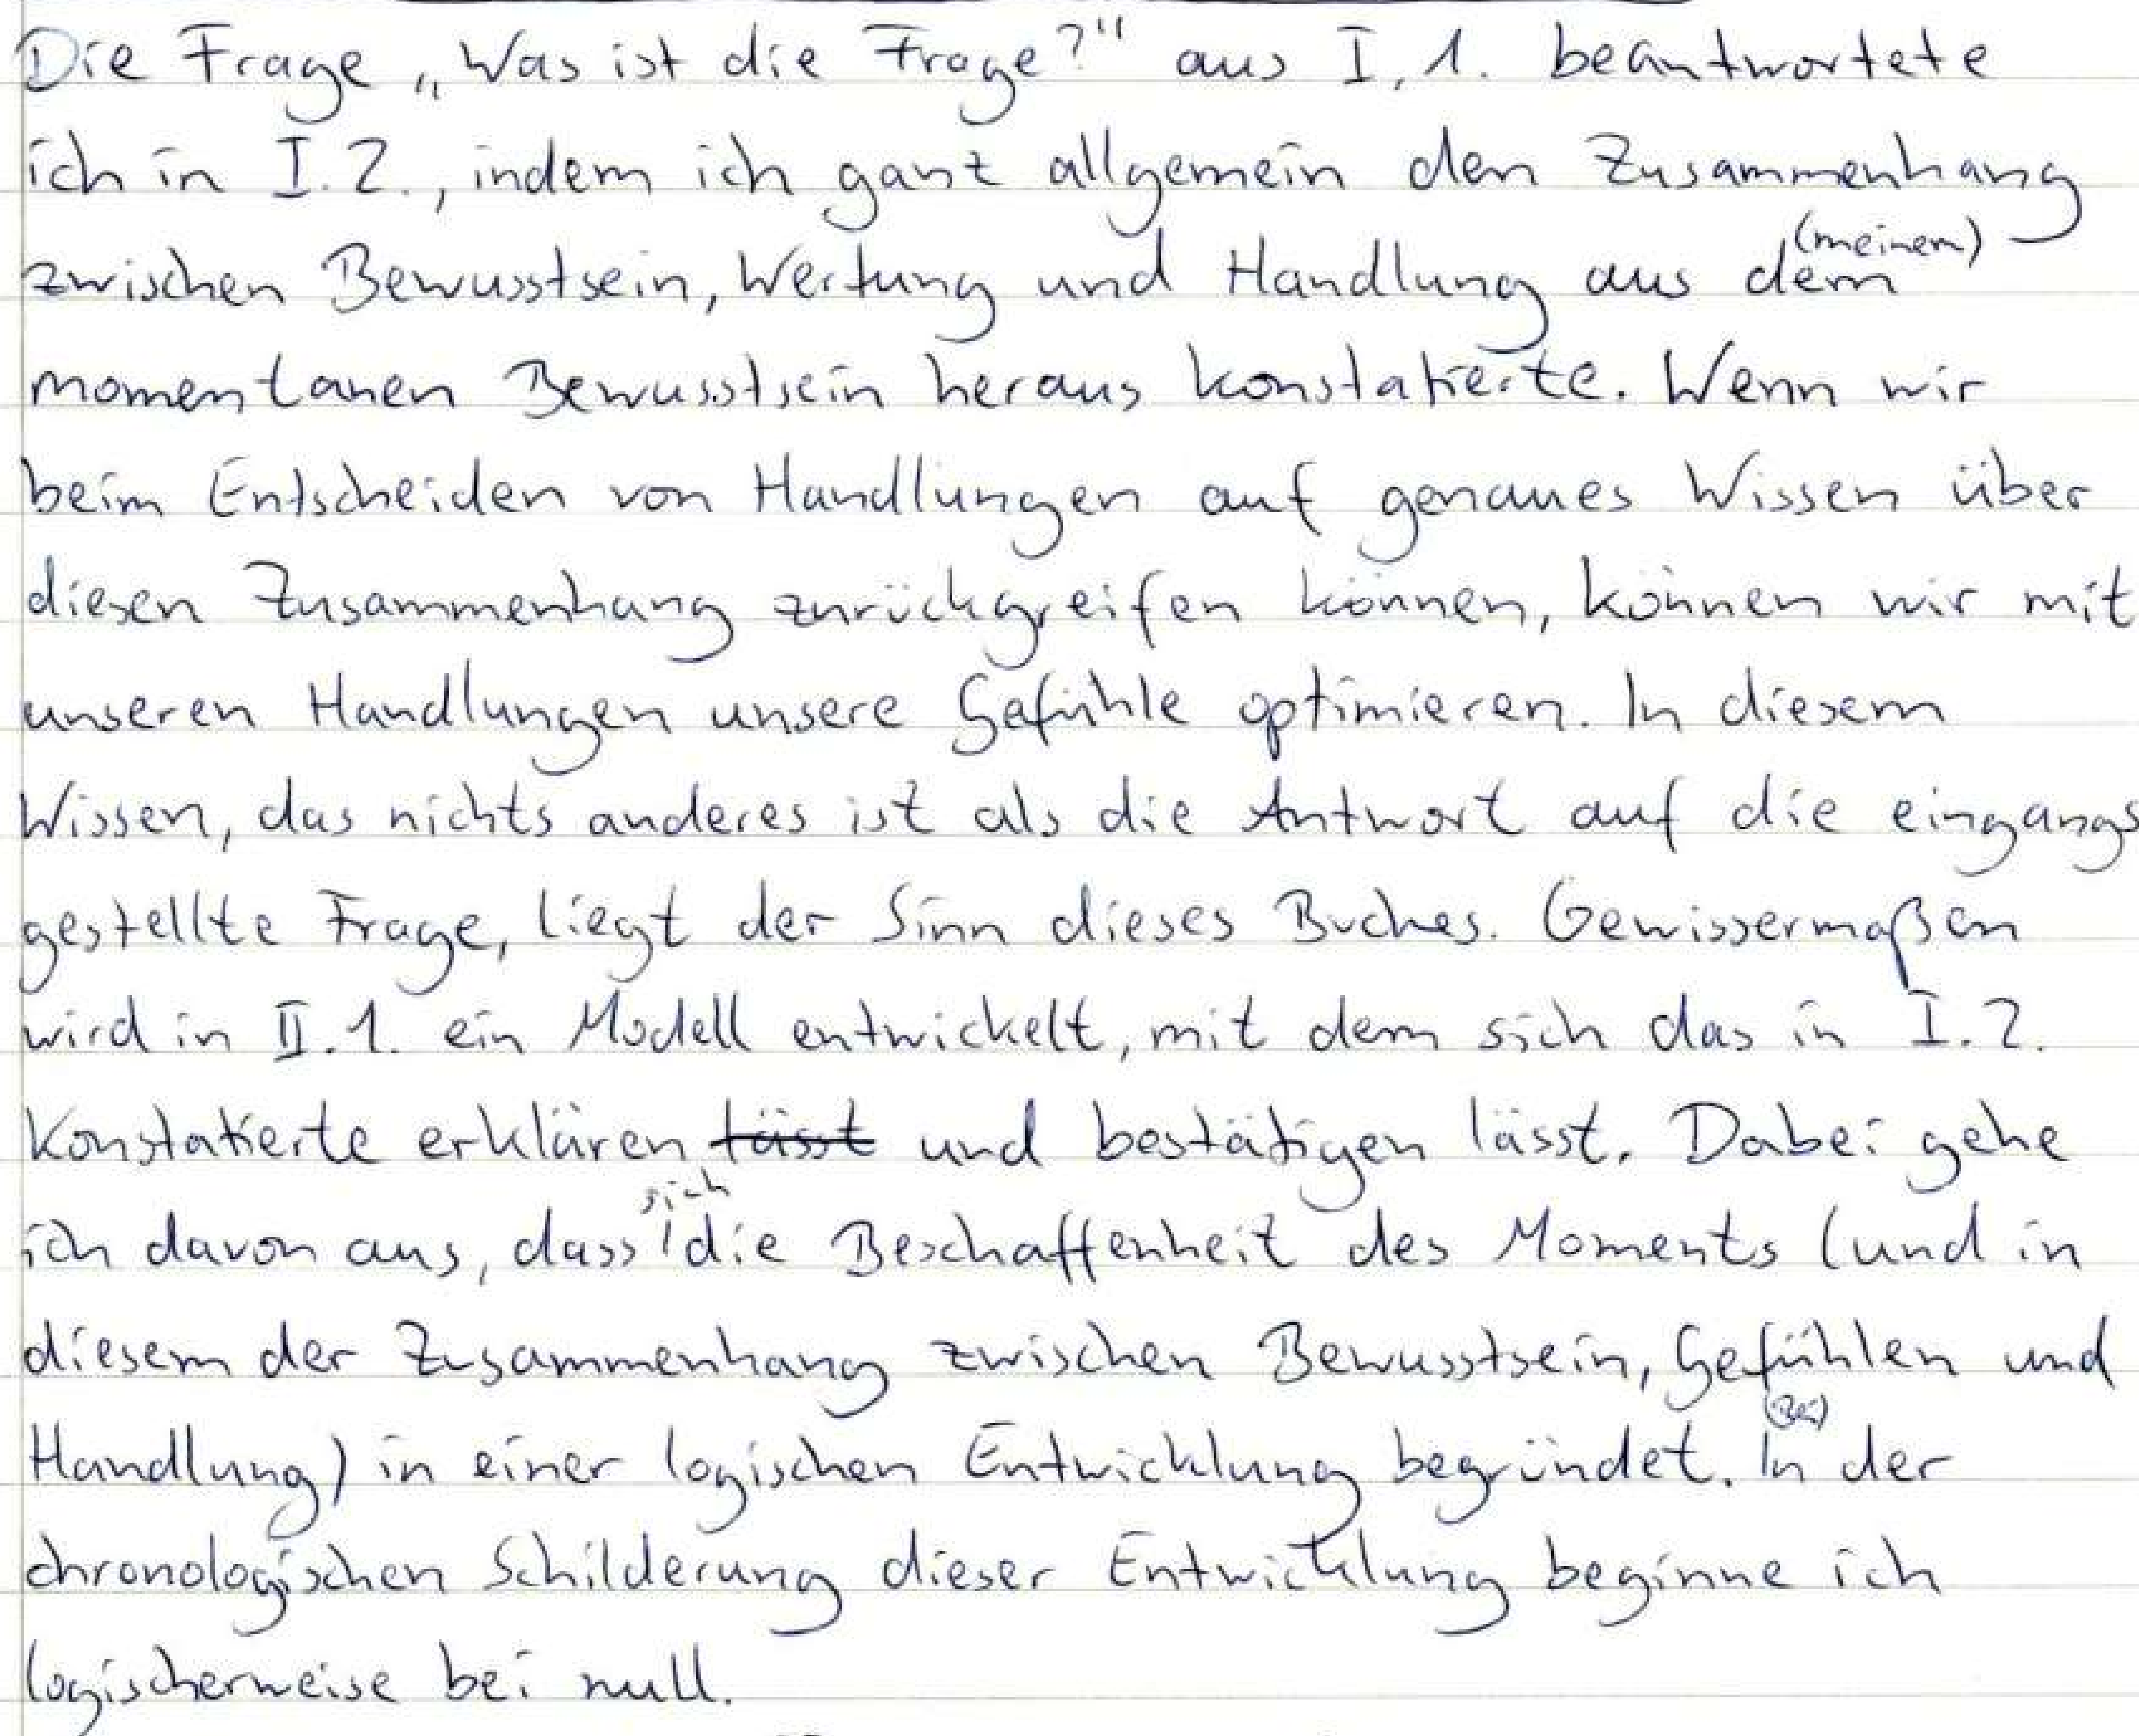 Die Frage „Was ist die Frage?" aus I.1. beantwortete
ich in I.2., indem ich ganz allgemein den Zusammenhang
zwischen Bewusstsein, Wertung und Handlung aus dem (meinem)
momentanen Bewusstsein heraus konstatierte. Wenn wir
beim Entscheiden von Handlungen auf genaues Wissen über
diesen Zusammenhang zurückgreifen können, können wir mit
unseren Handlungen unsere Gefühle optimieren. In diesem
Wissen, das nichts anderes ist als die Antwort auf die eingangs
gestellte Frage, liegt der Sinn dieses Buches. Gewissermaßen
wird in II.1. ein Modell entwickelt, mit dem sich das in I.2.
Konstatierte erklären lässt und bestätigen lässt. Dabei gehe
ich davon aus, dass sich die Beschaffenheit des Moments (und in
diesem der Zusammenhang zwischen Bewusstsein, Gefühlen und
Handlung) in einer logischen Entwicklung begründet. In (Bei) der
chronologischen Schilderung dieser Entwicklung beginne ich
logischerweise bei null.